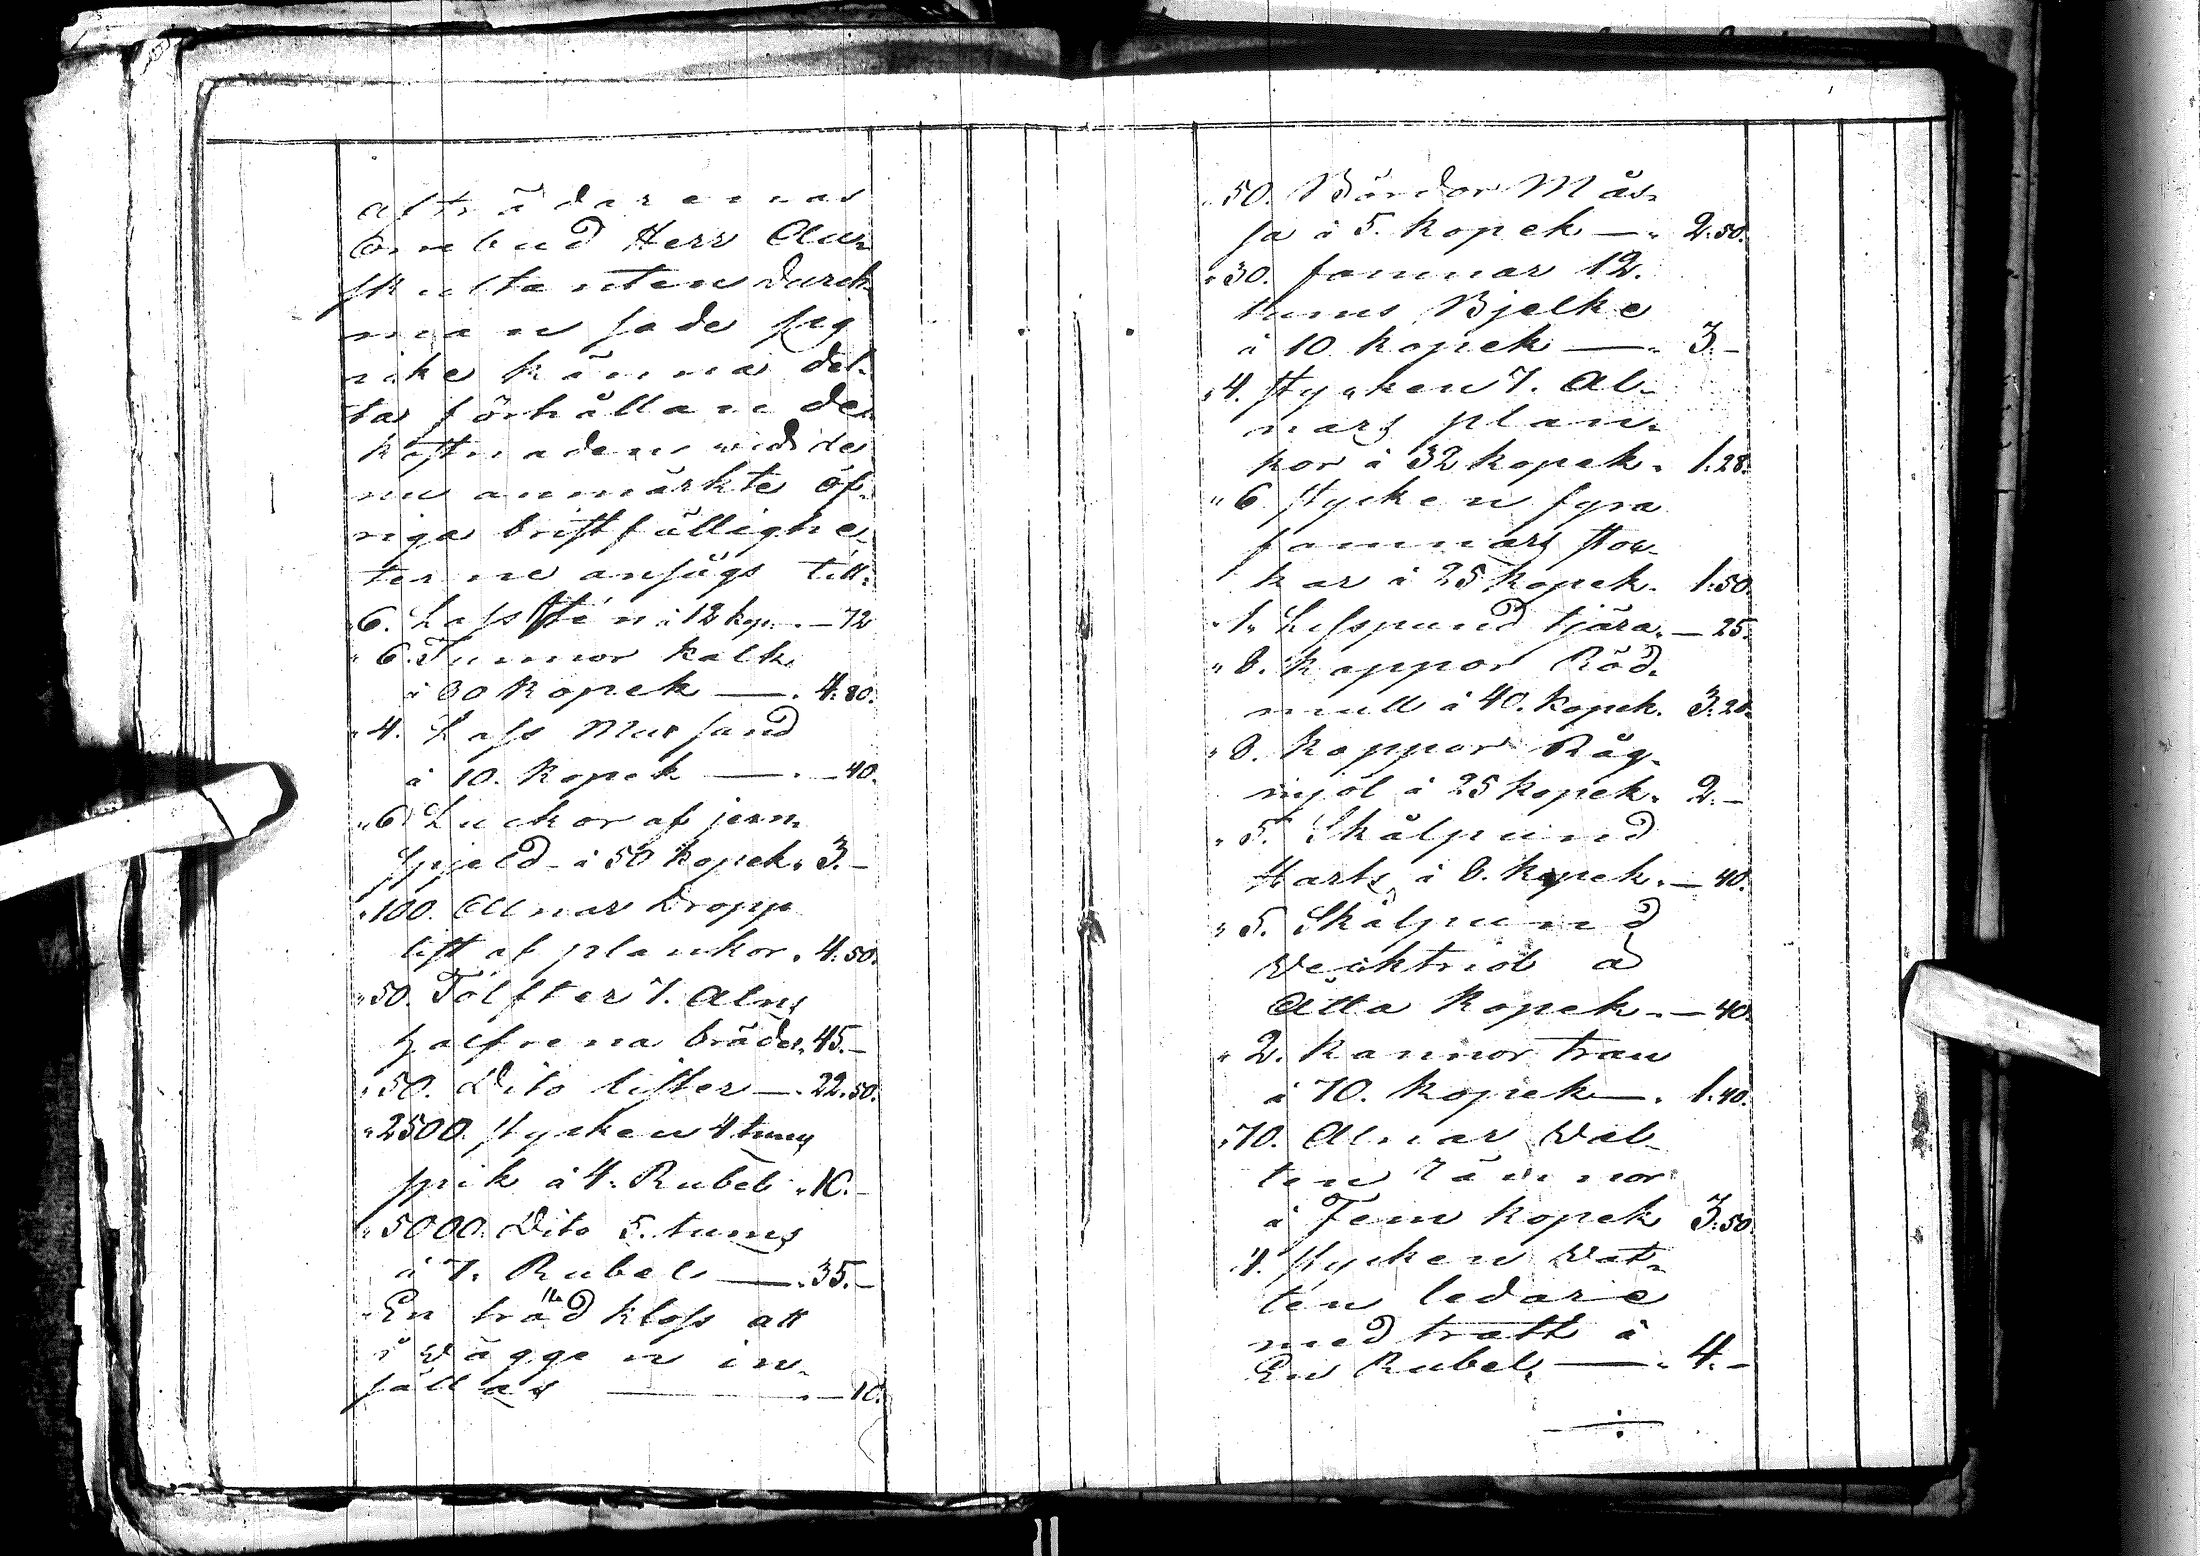 afträdarenas
ombud Herr Au-
skultanten Durch-
man sade sig
icke känna det-
ta förhållande
kostnaden wid de
nu anmärkte öf-
riga bristfällighe-
terne ansågs till:
6. Lass stén à 12 kop. — 72
" 6. Tunnor kalk
à 80 kopek —. 4.80.
" 4. Lass Mursand
à 10. kopek —. — 40.
" 6 Luckor af jern
spjeld à 50 kopek. 3.—
" 100. Alnar Dropp
list af plankor. 4.50.
" 50. Tolfter 7. Alns
halfrena bräder. 45.—
" 50. Dito lister —. 22.50.
" 2500. stycken 4 tums
spik à 4. Rubel. 10.—
" 5000. Dito 5. tums
à 7. Rubel —. 35.—
" En träd kloss att
i wäggen in-
fällas —. — 10.
" 50. Bördor Mås-
sa à 5. kopek —. 2.50.
" 30. famnar 12.
tums Bjelke
à 10 kopek —. 3.—
" 4. stycken 7. Al-
nars plan-
kor à 32 kopek. 1.28.
" 6 stycken fyra
famnars stoc-
kar à 25 kopek. 1.50.
" 1. Lisspund tjära. — 25.
" 8. kappor Röd-
mull à 40. kopek. 3.20.
" 8. kappor Råg-
mjöl à 25 kopek. 2.—
" 5. Skålpund
Harts à 8. kopek. — 40.
" 5. Skålpund
Wecktriol à
Åtta kopek. — 40.
" 2. kannor tran
à 70. kopek —. 1.40.
" 70. Alnar Wat-
ten rännor
à Fem kopek 3.50.
" 4. stycken Wat-
ten ledare
med tratt à
En Rubel, —. 4.—